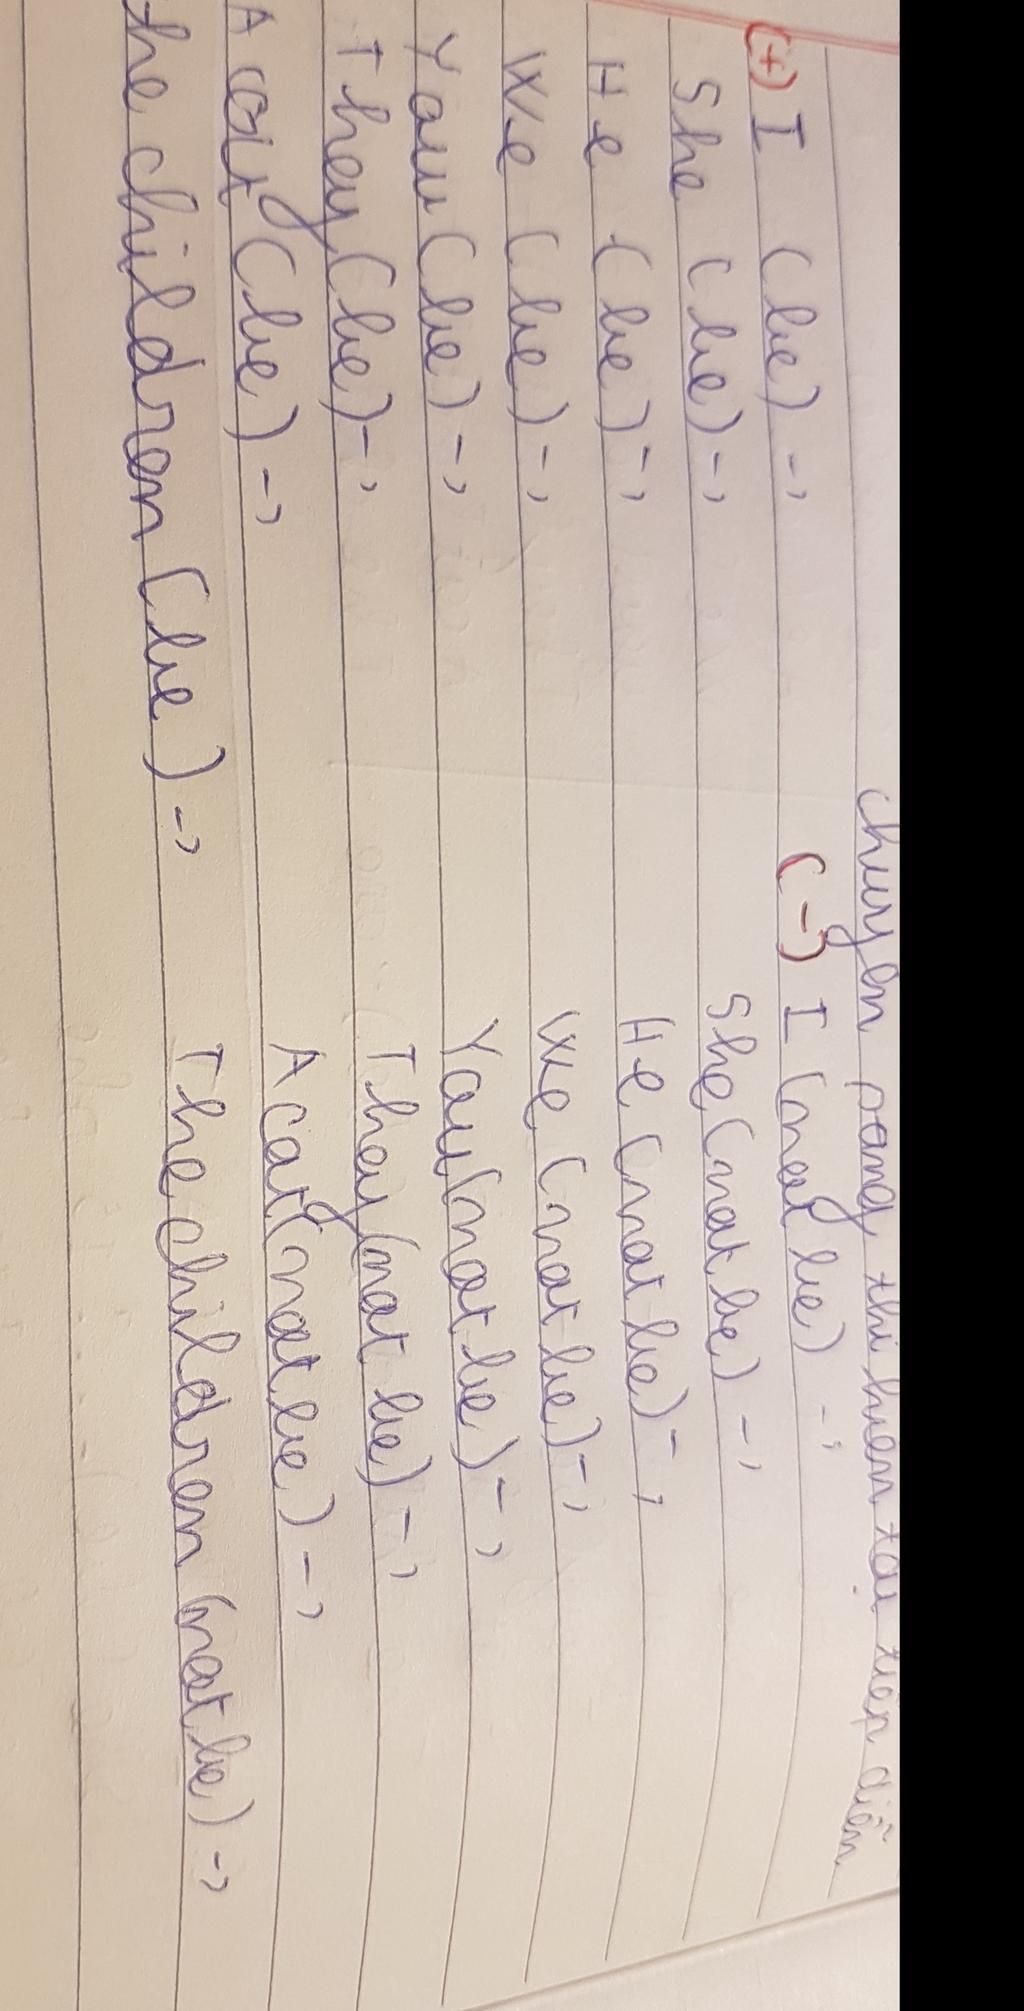 chuyển sang thì hiện tại tiếp diễn
(+) I (be) -> (-) I (not be) ->
She (be) -> She (not be) ->
He (be) -> He (not be) ->
We (be) -> We (not be) ->
You (be) -> You (not be) ->
They (be) -> They (not be) ->
A cat (be) -> A cat (not be) ->
The children (be) -> The children (not be) ->